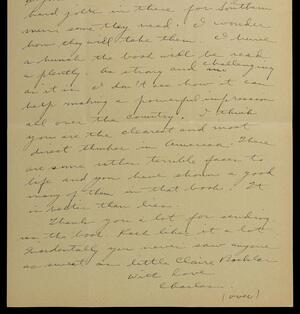 hard jolt in there for Southern
men, some they need. I wonder
how they will take them. I have
a hunch the book will be read
a plenty. As strong and challenging
as it is I don't see how it can
help making a powerful impression
all over the country. I think
you are the clearest and most
direct thinker in America. There
are some rather terrible faces to
life and you have shown a good
many of them in that book. It
is better than
Thank you a lot for sending
us the book. Ruth likes it a lot
Incidentally you never saw anyone
as sweet as little Claire
With love
Charles.
(over)